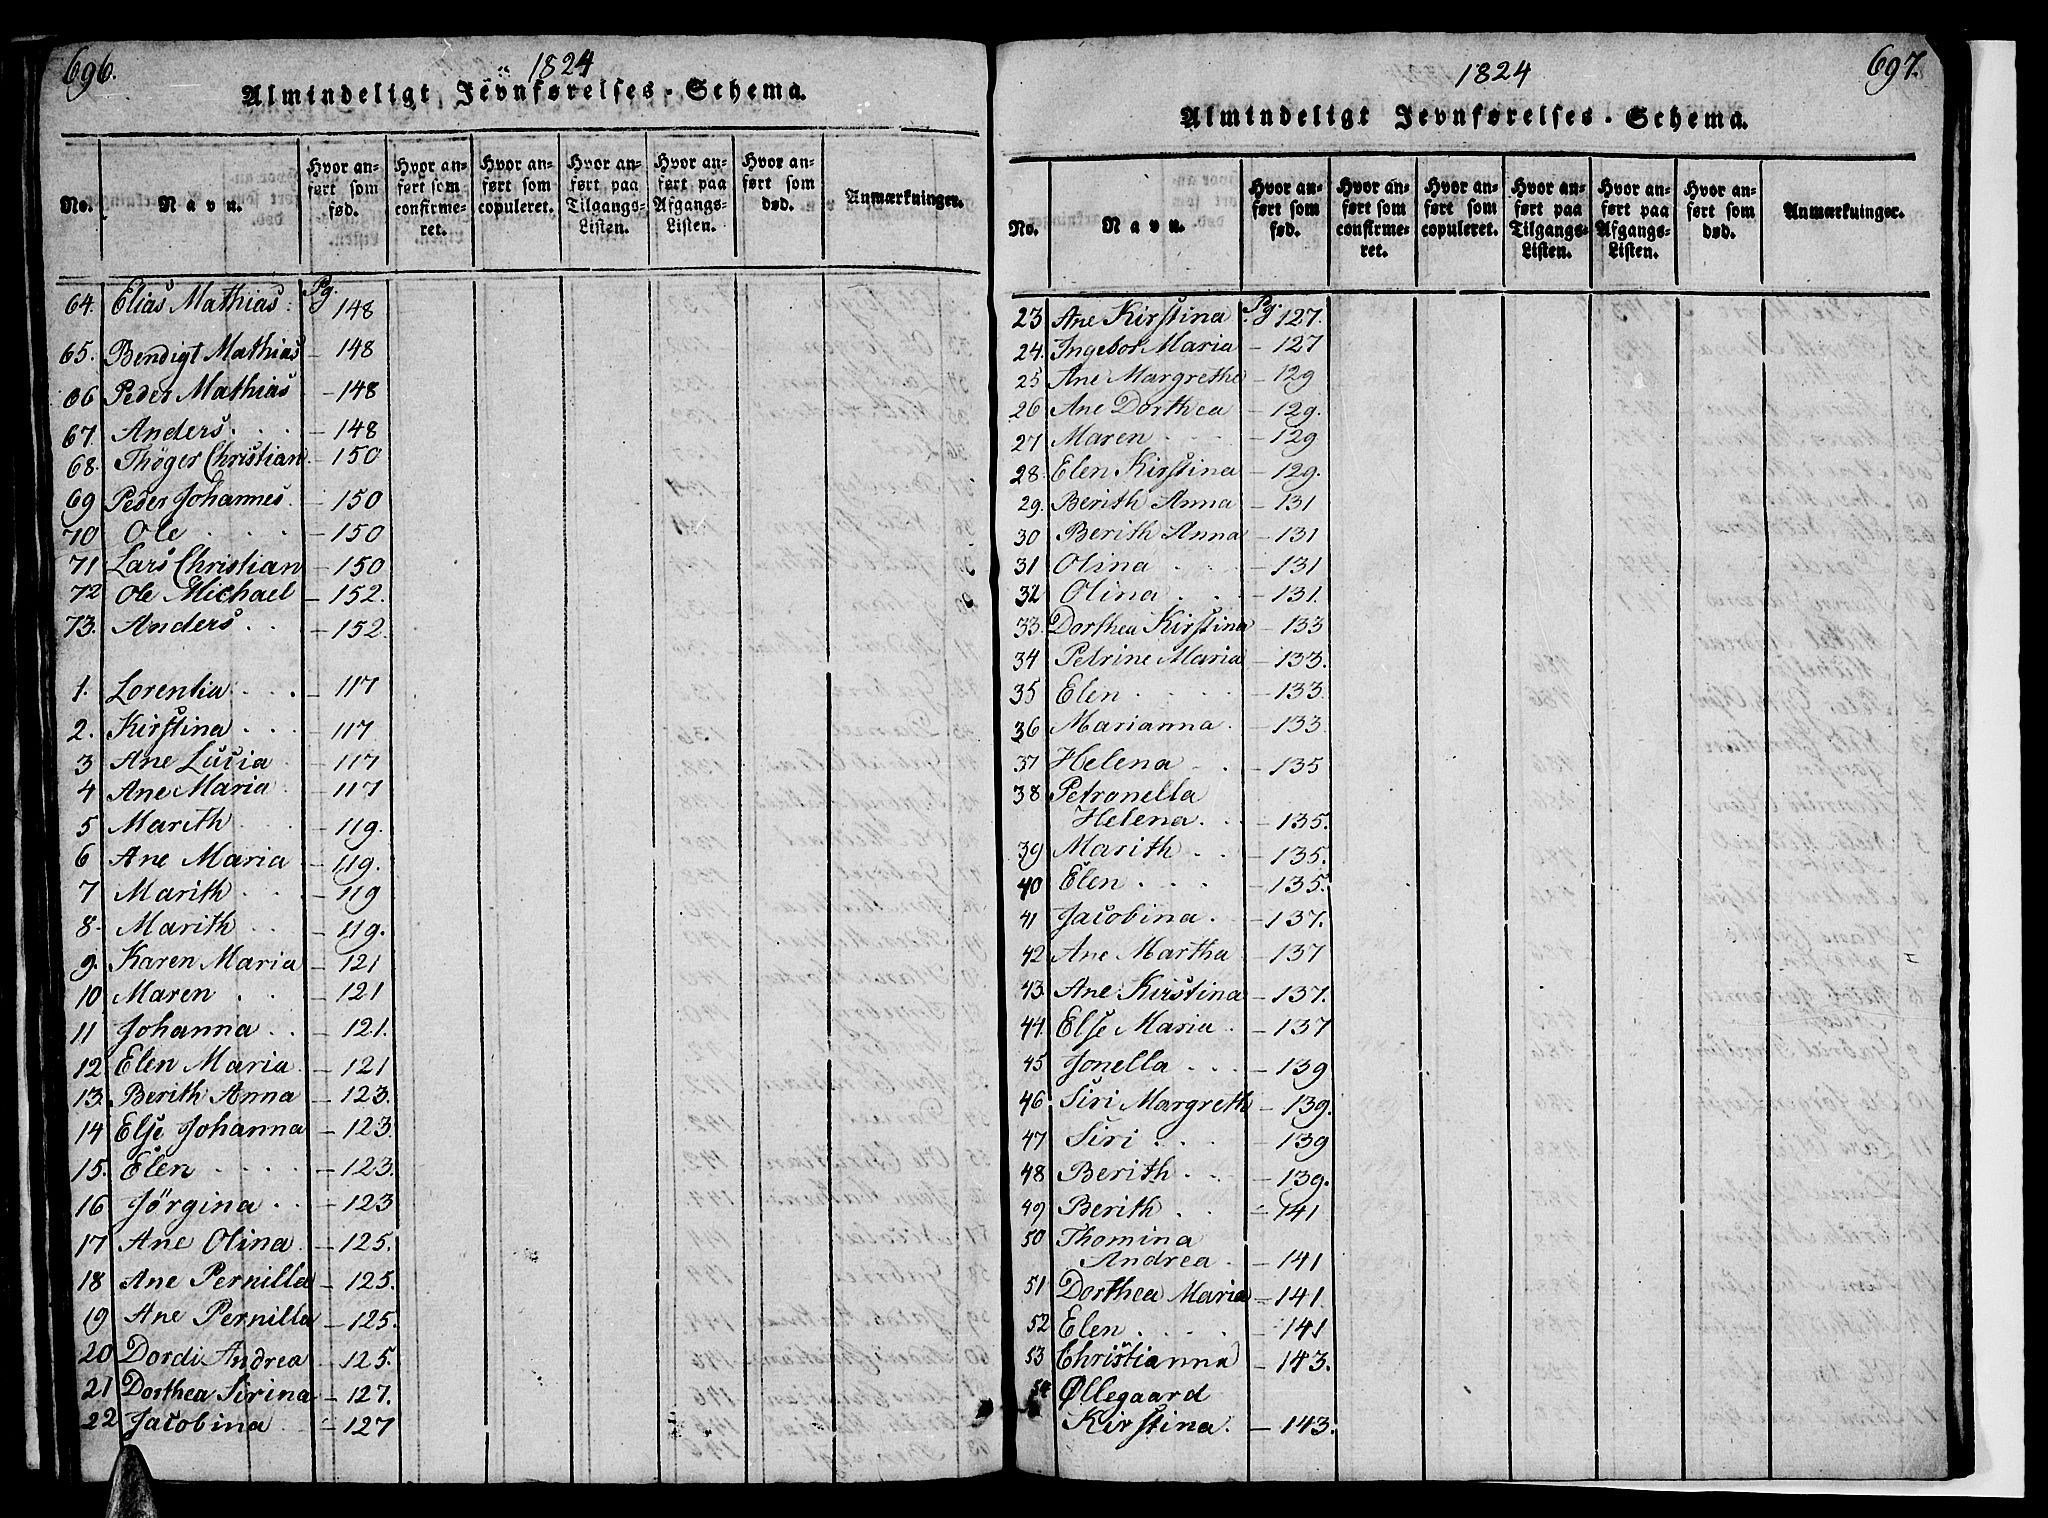 696.
1824
Almindeligt Jevnførelses-Schema.
No.
Navn.
Hvor anført som fød.
Hvor anført som confirmeret.
Hvor anført som copuleret.
Hvor anført paa Tilgangs-Listen.
Hvor anført paa Afgangs-Listen.
Hvor anført som død.
Anmærkninger.
64. Elias Mathias. Pg. 148
65. Bendigt Mathias - 148
66 Peder Mathias - 148
67. Anders. . . - 148
68. Thöger Christian - 150
69 Peder Johannes - 150
70 Ole . . . - 150
71 Lars Christian - 150
72 Ole Michael - 152.
73. Anders . . - 152
1. Lorentia . . . - 117
2. Kirstina . . . - 117
3 Ane Lucia . - 117
4 Ane Maria . - 117
5 Marith . . - 119.
6 Ane Maria - 119.
7 Marith . . - 119
8 Marith . . - 119.
9. Karen Maria - 121
10 Maren . . - 121
11 Johanna . . - 121.
12 Elen Maria - 121
13. Berith Anna - 123.
14 Else Johanna - 123.
15. Elen . . . . - 123.
16 Jörgina . . - 123
17 Ane Olina. - 125.
18 Ane Pernilla - 125.
19 Ane Pernilla - 125.
20 Dordi Andrea - 125.
21 Dorthea Sirina - 127.
22 Jacobina . . - 127
697.
1824
Almindeligt Jevnførelses-Schema.
No.
Navn.
Hvor anført som fød.
Hvor anført som confirmeret.
Hvor anført som copuleret.
Hvor anført paa Tilgangs-Listen.
Hvor anført paa Afgangs-Listen.
Hvor anført som død.
Anmærkninger.
23 Ane Kirstina Pg 127.
24. Ingebor Maria - 127
25 Ane Margrethe - 129
26 Ane Dorthea - 129.
27 Maren . . . - 129
28. Elen Kirstina - 129.
29. Berith Anna - 131
30 Berith Anna - 131
31 Olina . . . - 131
32 Olina . . . - 131.
33. Dorthea Kirstina - 133
34 Petrine Maria - 133.
35 Elen . . . . - 133.
36 Marianna . - 133
37 Helena . . - 135
38 Petronella
Helena . . - 135.
39 Marith . . - 135.
40 Elen . . . - 135.
41 Jacobina . - 137.
42 Ane Martha - 137
43. Ane Kirstina - 137.
44 Else Maria . - 137
45 Jonella . . . - 139
46 Siri Margreth - 139.
47 Siri . . . - 139
48 Berith . . - 139.
49 Berith . . - 141
50 Thomina
Andrea . - 141
51 Dorthea Maria - 141.
52 Elen . . . . - 141
53 Christianna - 143.
54 Øllegaard
Kirstina. - 143.